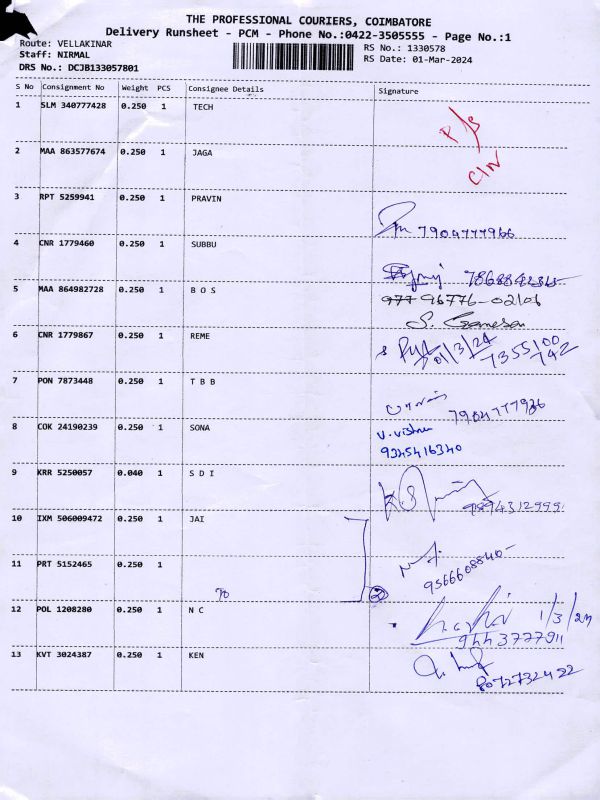 THE PROFESSIONAL COURIERS, COIMBATORE
Delivery Runsheet - PCM - Phone No.:0422-3505555 - Page No.:1
Route: VELLAKINAR
RS No.: 1330578
Staff: NIRMAL
RS Date: 01-Mar-2024
DRS No.: DCJB133057801
S No Consignment No Weight PCS Consignee Details Signature
1 SLM 340777428 0.250 1 TECH
2 MAA 863577674 0.250 1 JAGA
3 RPT 5259941 0.250 1 PRAVIN
7904777966
4 CNR 1779460 0.250 1 SUBBU
5 MAA 864982728 0.250 1 B O S
96776-02106
S. Ganesan
6 CNR 1779867 0.250 1 REME
01/3/24
7355100
742
7 PON 7873448 0.250 1 T B B
7904777936
8 COK 24190239 0.250 1 SONA
V. Vishnu
9345416340
9 KRR 5250057 0.040 1 S D I
9894312999
10 IXM 506009472 0.250 1 JAI
11 PRT 5152465 0.250 1
9566608840-
12 POL 1208280 0.250 1 N C
1/3/24
9443777911
13 KVT 3024387 0.250 1 KEN
8072732492